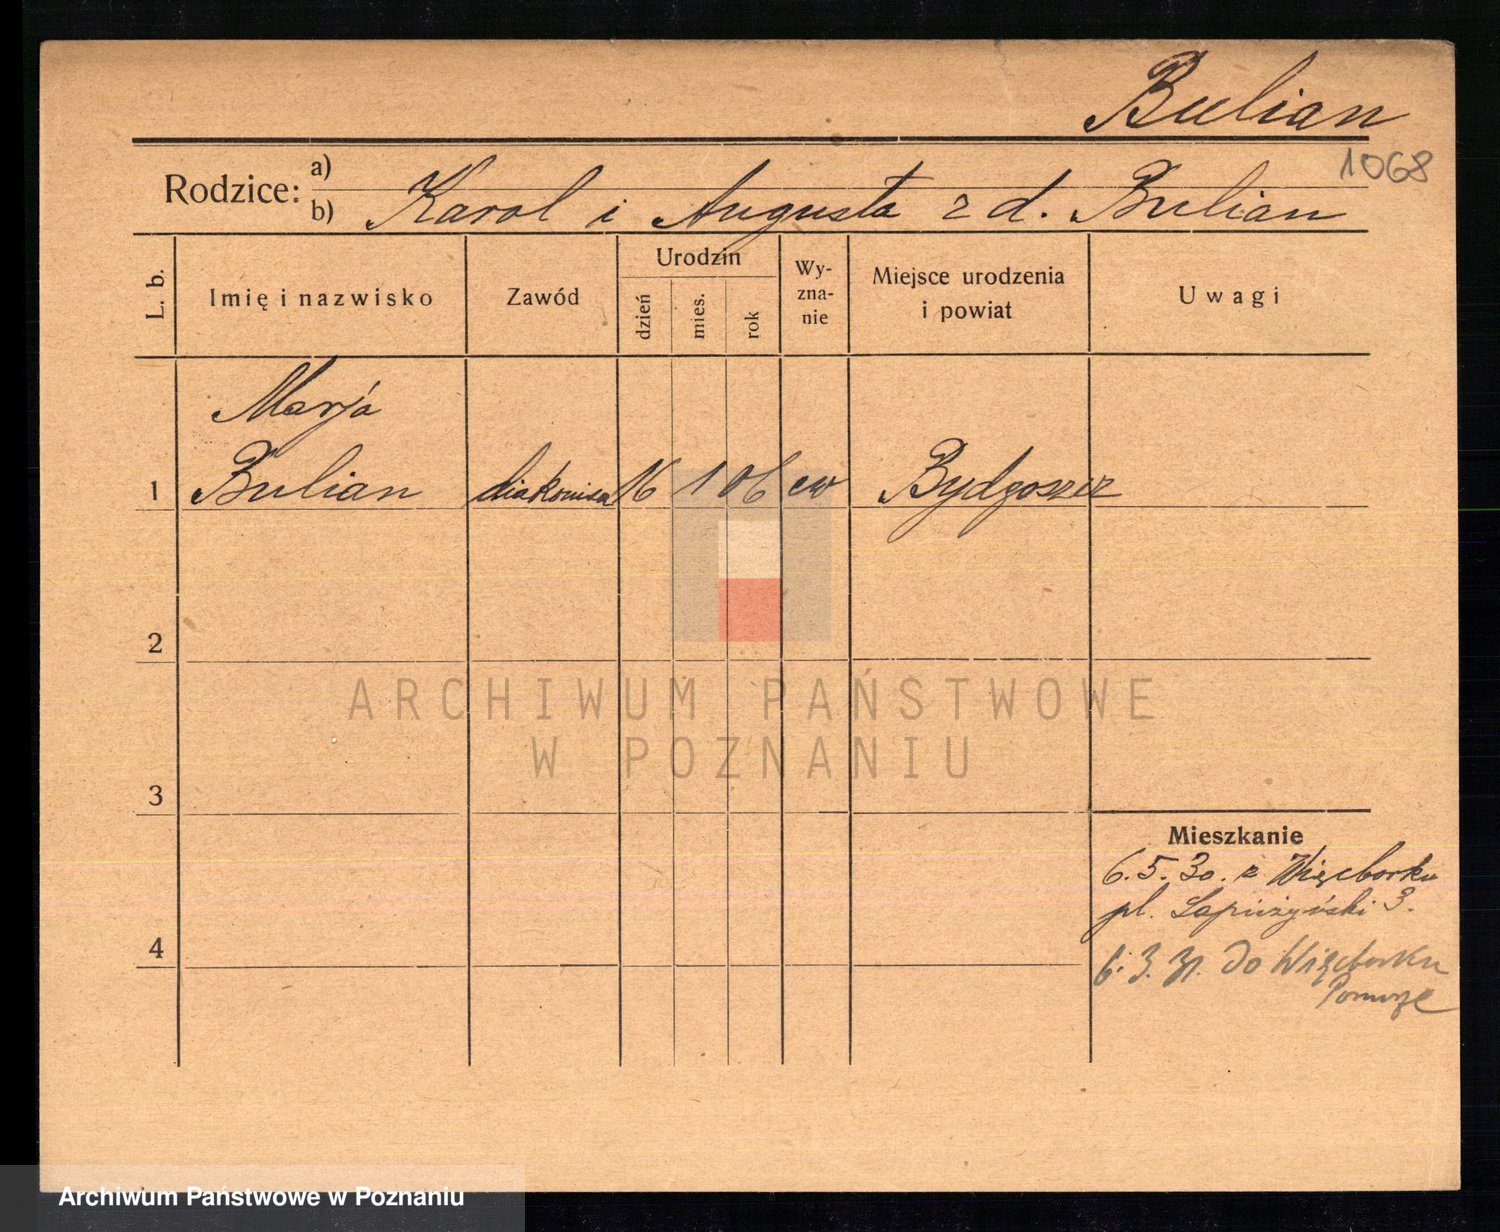 Bulian
1068
Rodzice: a)
b) Karol i Augusta z d. Bulian
L. b.
Imię i nazwisko
Zawód
Urodzin
dzień
mies.
rok
Wy-
zna-
nie
Miejsce urodzenia
i powiat
Uwagi
Marja
1 Bulian diakonisa 16 1 06 ew Bydgoszcz
2
ARCHIWUM PAŃSTWOWE
W POZNANIU
3
Mieszkanie
6.5.30. z Więcborku
pl. Sapieżyński 3.
4
6.3.31. do Więcborku
Pomorze
Archiwum Państwowe w Poznaniu